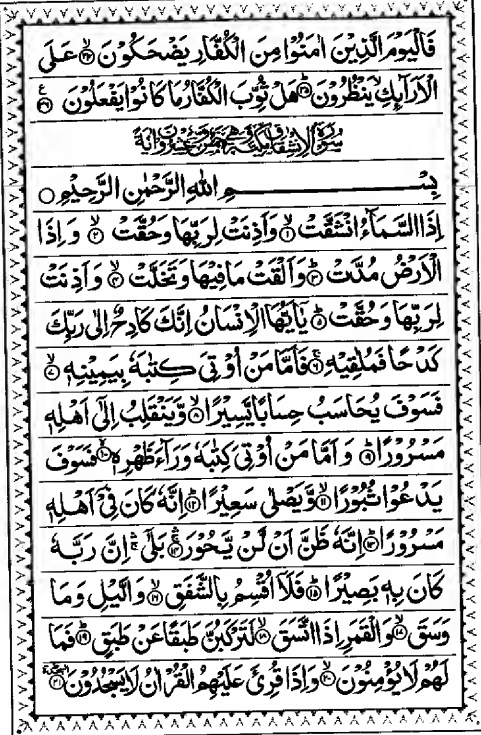 فَالْيَوْمَ الَّذِيْنَ اٰمَنُوْا مِنَ الْكُفَّارِ يَضْحَكُوْنَ ﴿۳۴﴾ عَلَى
الْاَرَآىِٕكِ يَنْظُرُوْنَ ﴿۳۵﴾ هَلْ ثُوِّبَ الْكُفَّارُ مَا كَانُوْا يَفْعَلُوْنَ ﴿۳۶﴾
سُوْرَةُ الْاِنْشِقَاقِ مَكِّيَّةٌ وَّهِيَ خَمْسٌ وَّعِشْرُوْنَ اٰيَةً
بِسْمِ اللّٰهِ الرَّحْمٰنِ الرَّحِيْمِ ○
اِذَا السَّمَآءُ انْشَقَّتْ ﴿۱﴾ وَاَذِنَتْ لِرَبِّهَا وَحُقَّتْ ﴿۲﴾ وَاِذَا
الْاَرْضُ مُدَّتْ ﴿۳﴾ وَاَلْقَتْ مَا فِيْهَا وَتَخَلَّتْ ﴿۴﴾ وَاَذِنَتْ
لِرَبِّهَا وَحُقَّتْ ﴿۵﴾ يٰۤاَيُّهَا الْاِنْسَانُ اِنَّكَ كَادِحٌ اِلٰى رَبِّكَ
كَدْحًا فَمُلٰقِيْهِ ﴿۶﴾ فَاَمَّا مَنْ اُوْتِيَ كِتٰبَهٗ بِيَمِيْنِهٖ ﴿۷﴾
فَسَوْفَ يُحَاسَبُ حِسَابًا يَّسِيْرًا ﴿۸﴾ وَّيَنْقَلِبُ اِلٰۤى اَهْلِهٖ
مَسْرُوْرًا ﴿۹﴾ وَاَمَّا مَنْ اُوْتِيَ كِتٰبَهٗ وَرَآءَ ظَهْرِهٖ ﴿۱۰﴾ فَسَوْفَ
يَدْعُوْا ثُبُوْرًا ﴿۱۱﴾ وَّيَصْلٰى سَعِيْرًا ﴿۱۲﴾ اِنَّهٗ كَانَ فِيْۤ اَهْلِهٖ
مَسْرُوْرًا ﴿۱۳﴾ اِنَّهٗ ظَنَّ اَنْ لَّنْ يَّحُوْرَ ﴿۱۴﴾ بَلٰۤى ۛ اِنَّ رَبَّهٗ
كَانَ بِهٖ بَصِيْرًا ﴿۱۵﴾ فَلَاۤ اُقْسِمُ بِالشَّفَقِ ﴿۱۶﴾ وَالَّيْلِ وَمَا
وَسَقَ ﴿۱۷﴾ وَالْقَمَرِ اِذَا اتَّسَقَ ﴿۱۸﴾ لَتَرْكَبُنَّ طَبَقًا عَنْ طَبَقٍ ﴿۱۹﴾ فَمَا
لَهُمْ لَا يُؤْمِنُوْنَ ﴿۲۰﴾ وَاِذَا قُرِئَ عَلَيْهِمُ الْقُرْاٰنُ لَا يَسْجُدُوْنَ ﴿۲۱﴾